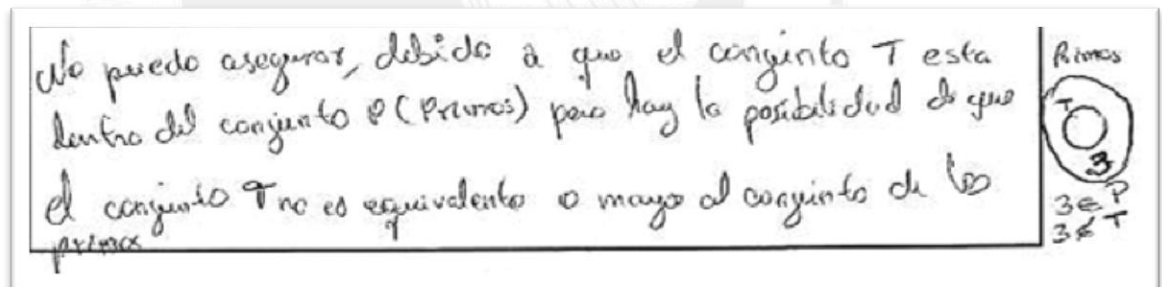 No puedo asegurar, debido a que el conjunto T esta
dentro del conjunto P (Primos) pero hay la posibilidad de que
el conjunto T no es equivalente o mayor al conjunto de los
primos
Primos
T
3
3 ∈ P
3 ∉ T